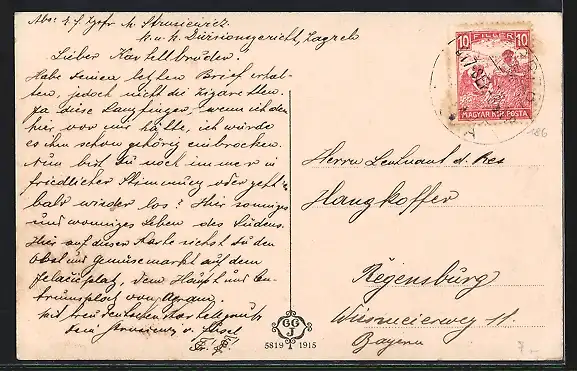 Abs: k. f. Zgsfr M. Strusiewicz
k. u. k. Divisionsgericht, Zagreb
Lieber Kartellbruder!
Habe Deinen letzten Brief erhal-
ten, jedoch nicht die Zigaretten.
Ja diese Langfinger, wenn ich den
hier vor mir hätte, ich würde
es ihm schon gehörig einbrocken.
Nun bist Du noch immer in
friedlicher Stimmung oder geht's
bald wieder los? Hier sonniges
und wonniges Leben des Südens.
Hier auf dieser Karte siehst Du den
Obst und Gemüsemarkt auf dem
Jelačićplatz, dem Haupt und Cen-
trumsplatz von Agram.
Mit treudeutschem Kartellgruß
Dein
10 FILLER 10
MAGYAR KIR. POSTA
186
Herrn Leutnant d. Res
Hangkoffer
Regensburg
Wismeierweg 11.
Bayern
GG
J
5819 1915
7.-